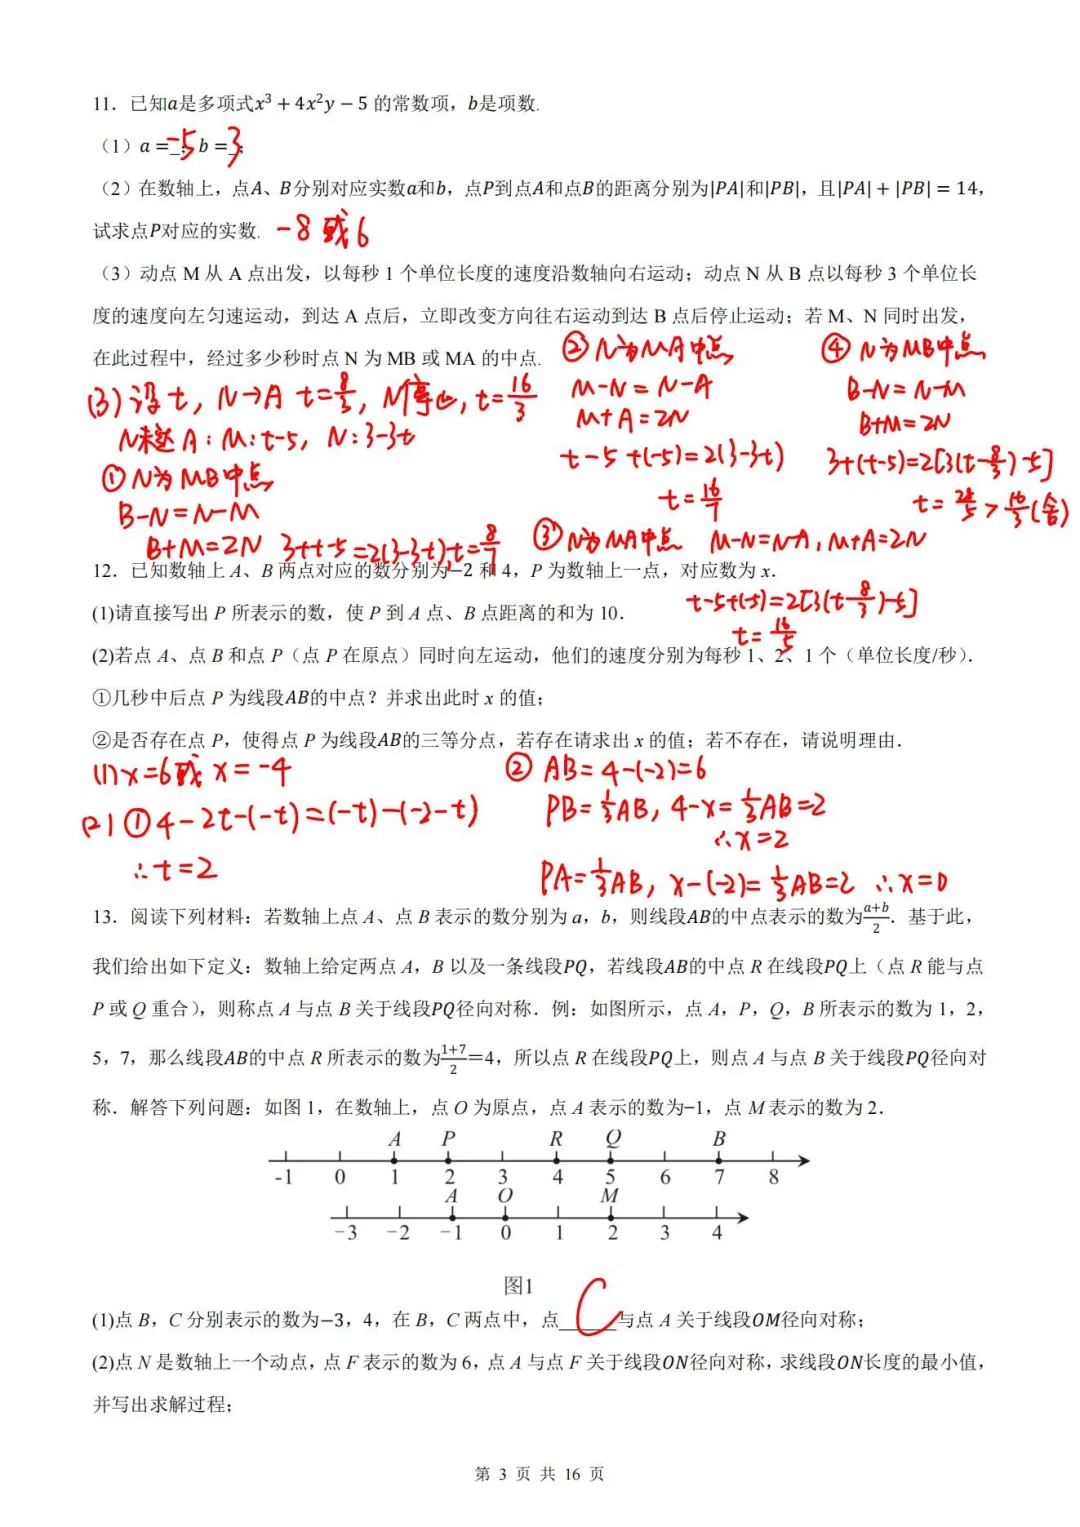 11．已知a是多项式x³ + 4x²y − 5 的常数项，b是项数.
（1）a =_-5_; b =_3_;
（2）在数轴上，点A、B分别对应实数a和b，点P到点A和点B的距离分别为|PA|和|PB|，且|PA| + |PB| = 14，
试求点P对应的实数. -8 或 6
（3）动点 M 从 A 点出发，以每秒 1 个单位长度的速度沿数轴向右运动；动点 N 从 B 点以每秒 3 个单位长
度的速度向左匀速运动，到达 A 点后，立即改变方向往右运动到达 B 点后停止运动；若 M、N 同时出发，
在此过程中，经过多少秒时点 N 为 MB 或 MA 的中点.
(3) 设 t，N→A t=8/3，N停止，t=16/3
N未达 A：M: t-5，N: 3-3t
① N为 MB中点
B-N=N-M
B+M=2N 3+t-5=2(3-3t), t=8/7
② N为MA中点
M-N=N-A
M+A=2N
t-5+(-5)=2(3-3t)
t=16/7
④ N为MB中点
B-N=N-M
B+M=2N
3+(t-5)=2[3(t-8/3)-5]
t=24/5>16/3(舍)
③ N为MA中点 M-N=N-A, M+A=2N
t-5+(-5)=2[3(t-8/3)-5]
t=16/5
12．已知数轴上 A、B 两点对应的数分别为−2 和 4，P 为数轴上一点，对应数为 x．
(1)请直接写出 P 所表示的数，使 P 到 A 点、B 点距离的和为 10．
(2)若点 A、点 B 和点 P（点 P 在原点）同时向左运动，他们的速度分别为每秒 1、2、1 个（单位长度/秒）．
①几秒中后点 P 为线段AB的中点？并求出此时 x 的值；
②是否存在点 P，使得点 P 为线段AB的三等分点，若存在请求出 x 的值；若不存在，请说明理由．
(1) x=6或 x=-4
(2) ① 4-2t-(-t)=(-t)-(-2-t)
∴t=2
② AB=4-(-2)=6
PB=1/3AB，4-x=1/3AB=2
∴x=2
PA=1/3AB，x-(-2)=1/3AB=2 ∴x=0
13．阅读下列材料：若数轴上点 A、点 B 表示的数分别为 a，b，则线段AB的中点表示的数为(a+b)/2．基于此，
我们给出如下定义：数轴上给定两点 A，B 以及一条线段PQ，若线段AB的中点 R 在线段PQ上（点 R 能与点
P 或 Q 重合），则称点 A 与点 B 关于线段PQ径向对称．例：如图所示，点 A，P，Q，B 所表示的数为 1，2，
5，7，那么线段AB的中点 R 所表示的数为(1+7)/2=4，所以点 R 在线段PQ上，则点 A 与点 B 关于线段PQ径向对
称．解答下列问题：如图 1，在数轴上，点 O 为原点，点 A 表示的数为−1，点 M 表示的数为 2．
A P R Q B
-1 0 1 2 3 4 5 6 7 8
A O M
−3 −2 −1 0 1 2 3 4
图1
(1)点 B，C 分别表示的数为−3，4，在 B，C 两点中，点 C 与点 A 关于线段OM径向对称；
(2)点 N 是数轴上一个动点，点 F 表示的数为 6，点 A 与点 F 关于线段ON径向对称，求线段ON长度的最小值，
并写出求解过程；
第 3 页 共 16 页